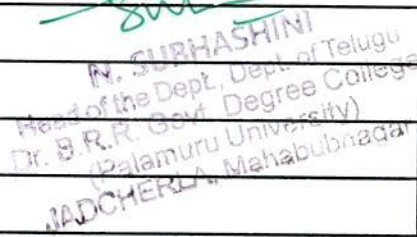 N. SUBHASHINI
Head of the Dept., Dept. of Telugu
Dr. B.R.R. Govt. Degree College
(Palamuru University)
JADCHERLA, Mahabubnagar